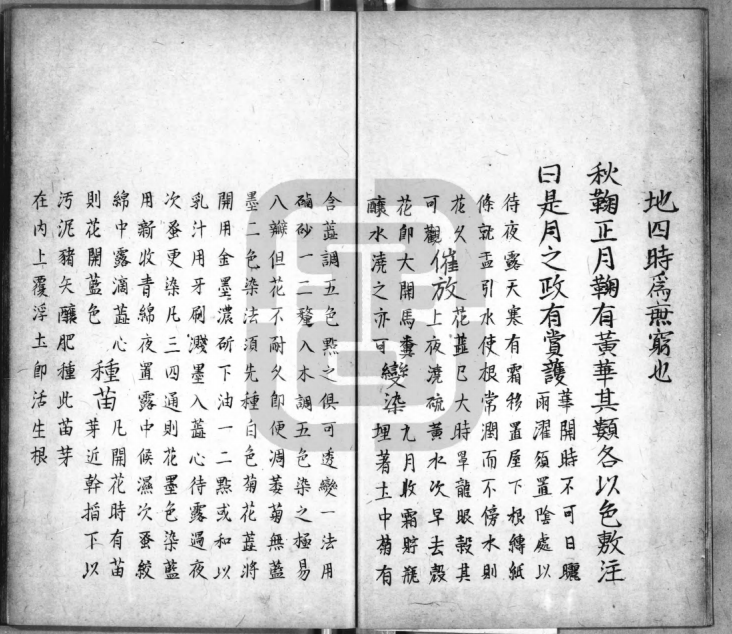 地四時爲無窮也
秋鞠正月鞠有黃華其類各以色敷注
曰是月之政有賞護華開時不可日曬
雨濯須置陰處以
待夜露天寒有霜移置屋下根縛紙
條就盂引水使根常潤而不傍水則
花久可觀催放花蕋已大時罩龍眼殼其
上夜澆硫黃水次早去殼
花卽大開馬糞變染九月收霜貯瓶
釀水澆之亦可埋著土中菊有
含蕋調五色點之俱可透變一法用
硇砂一二䥫入水調五色染之極易
八瓣但花不耐久卽便凋萎菊無藍
墨二色染法須先種白色菊花蕋將
開用金墨濃硏下油一二點或和以
乳汁用牙刷濺墨入蕋心待露過夜
次蚤更染凡三四遍則花墨色染藍
用新收青綿夜置露中候濕次蚤絞
綿中露滴蕋心種苗凡開花時有苗
則花開藍色芽近幹掐下以
污泥豬矢釀肥種此苗芽
在內上覆浮土卽活生根